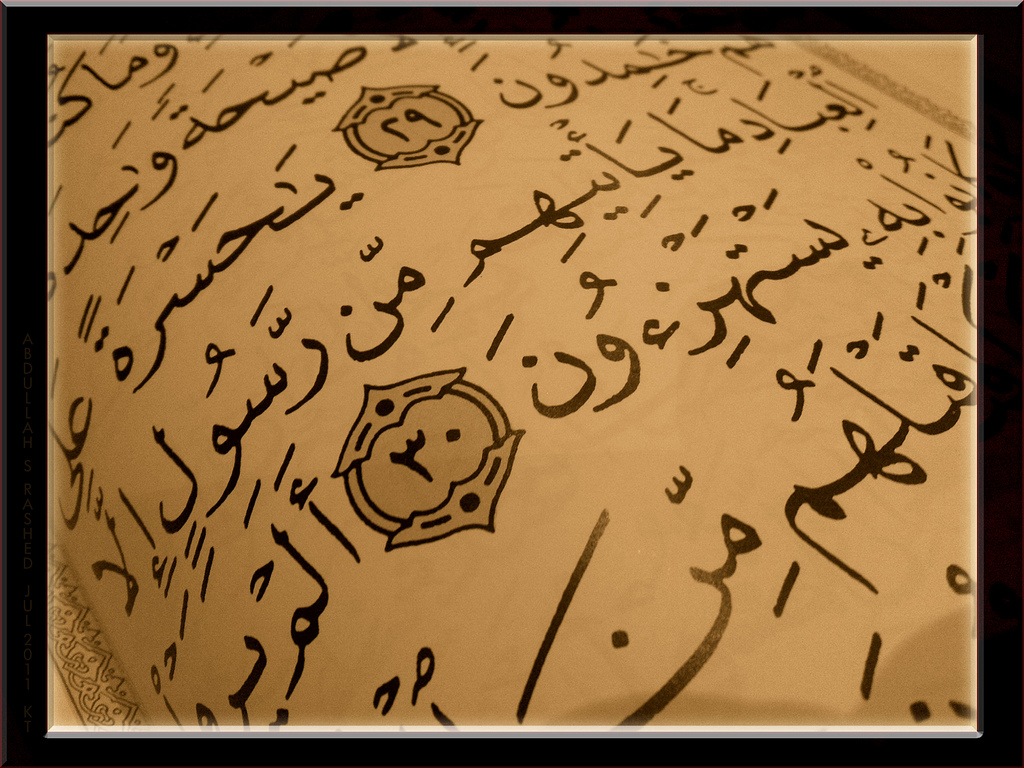 وَمَا
صَيْحَةً وَٰحِدَةً
خَٰمِدُونَ ٢٩ يَٰحَسْرَةً عَلَى
ٱلْعِبَادِ مَا يَأْتِيهِم مِّن رَّسُولٍ إِلَّا
بِهِۦ يَسْتَهْزِءُونَ ٣٠ أَلَمْ يَرَ
قَبْلَهُم مِّنَ
ABDULLAH S RASHED JUL 2011 KT